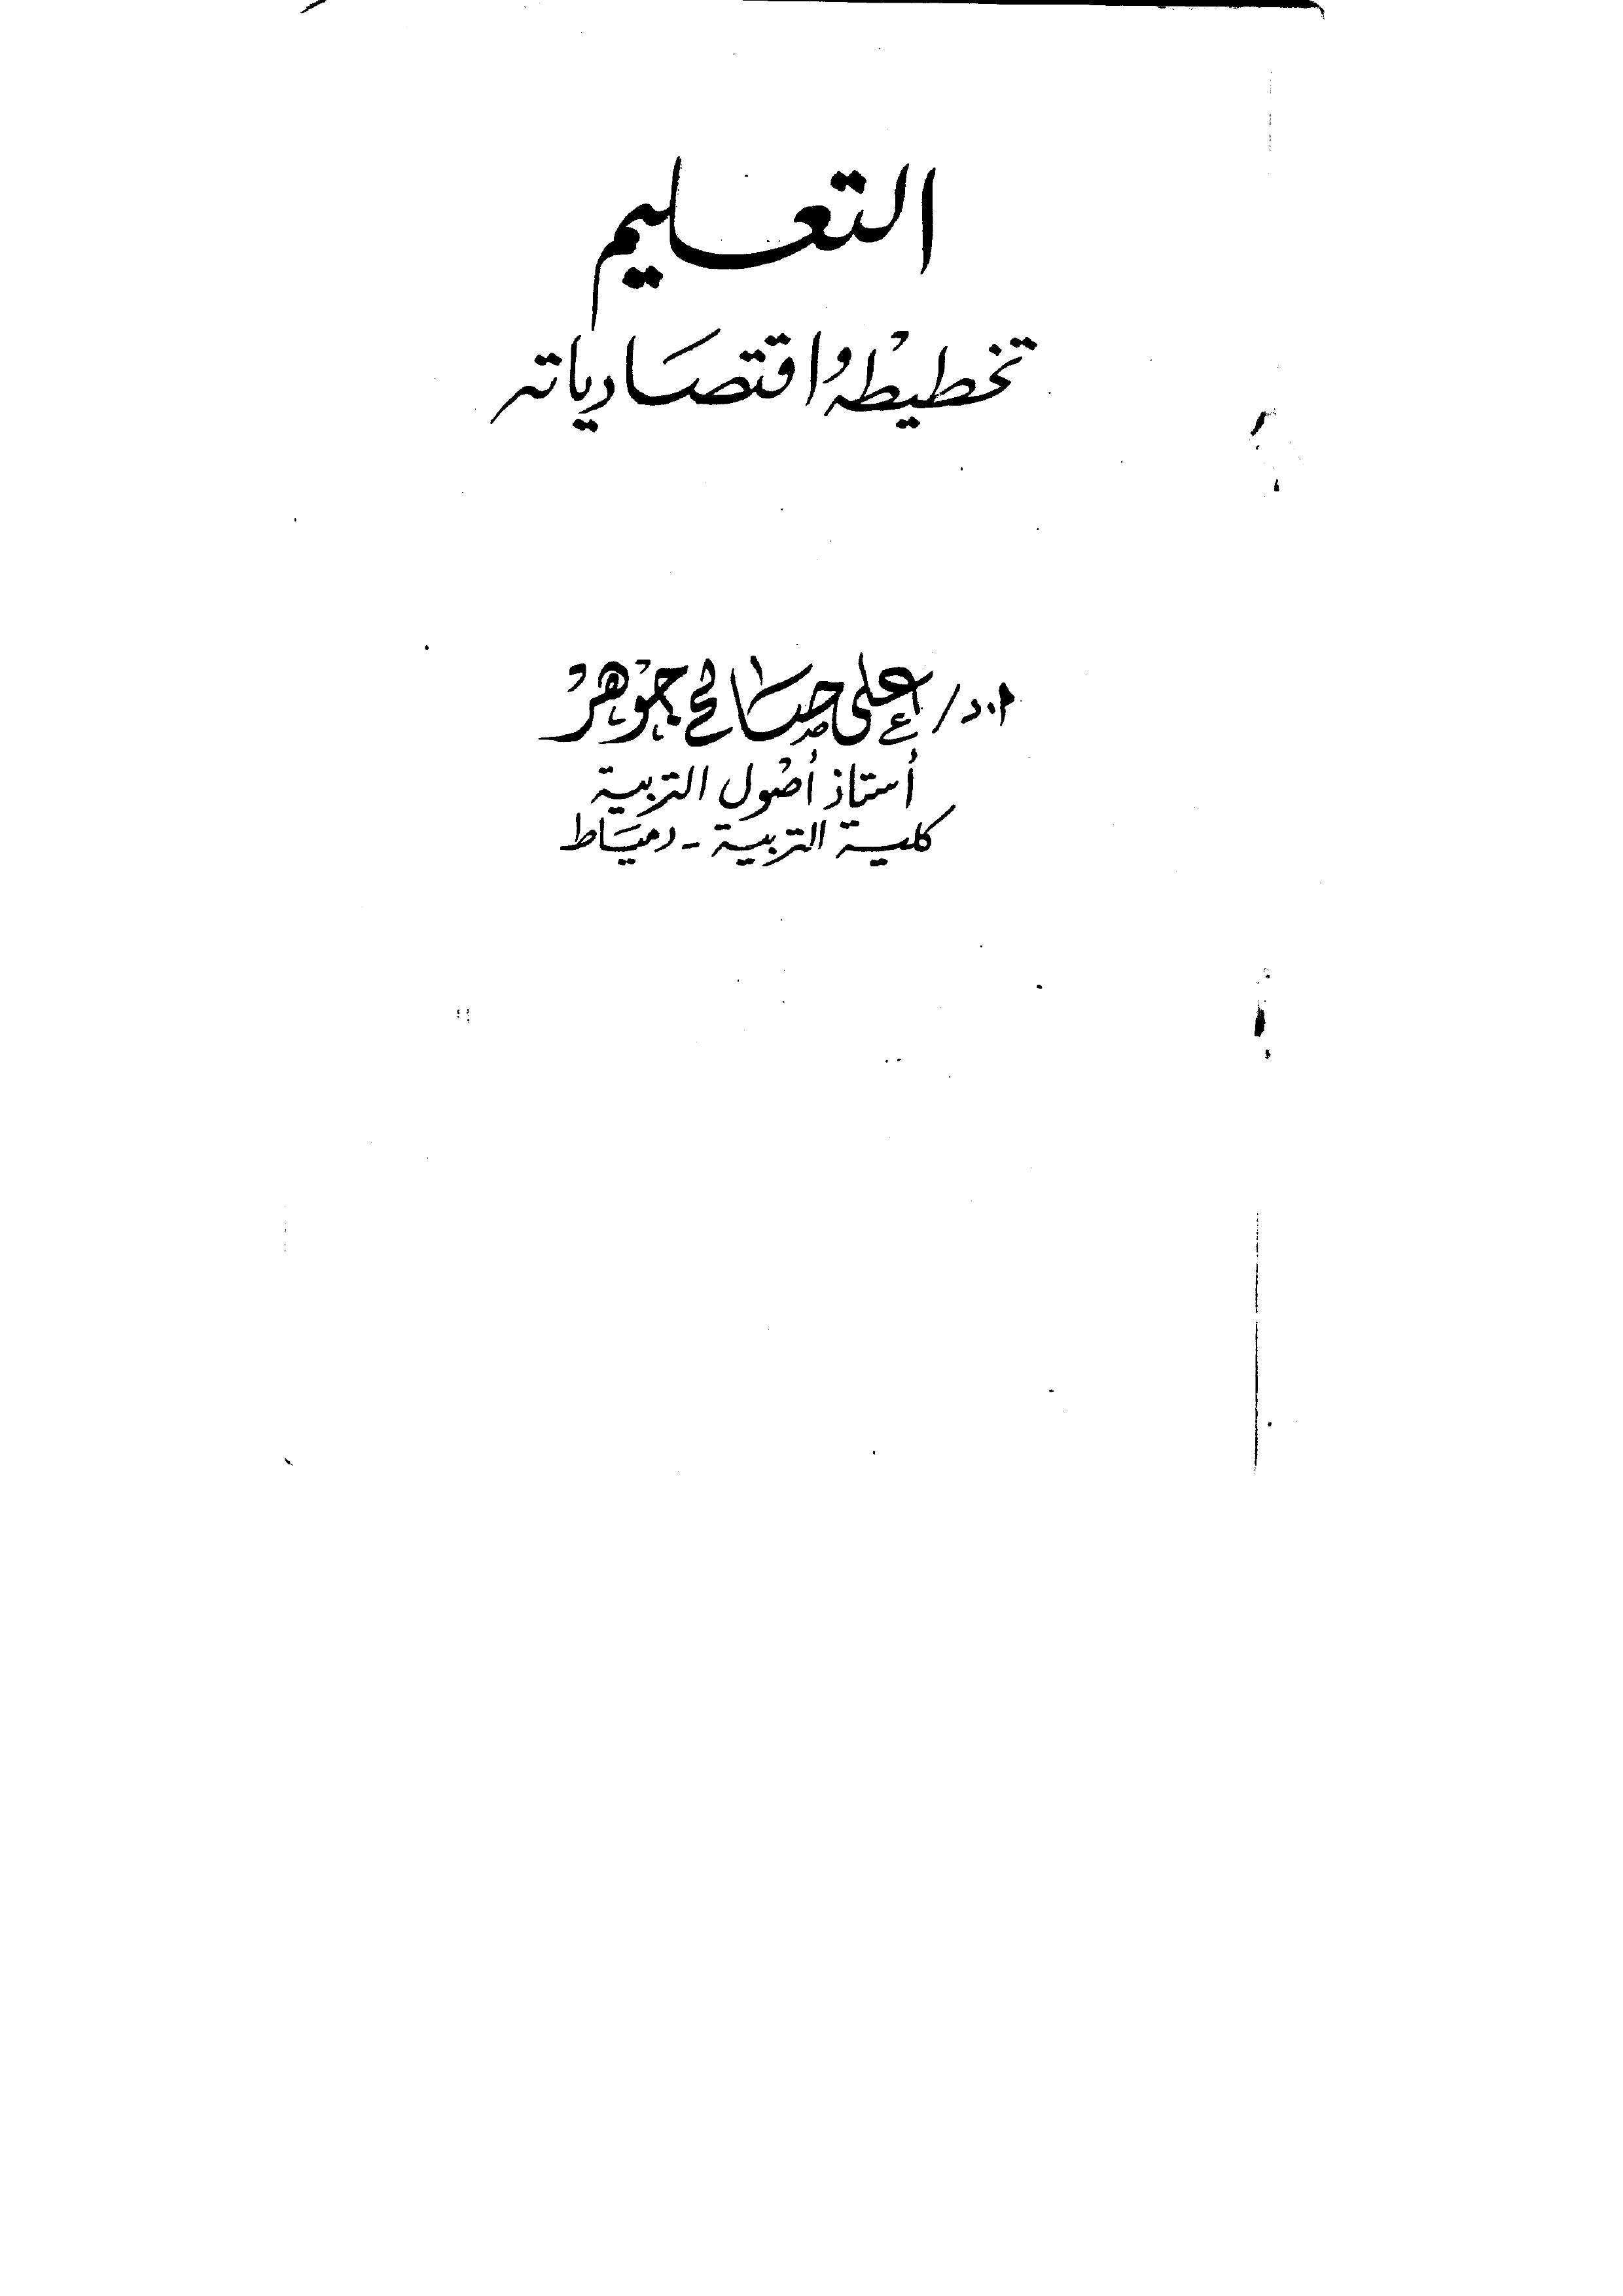 التعليم
تخطيطه واقتصادياته
ا.د/ على صالح جوهر
أستاذ أصول التربية
كلية التربية - دمياط